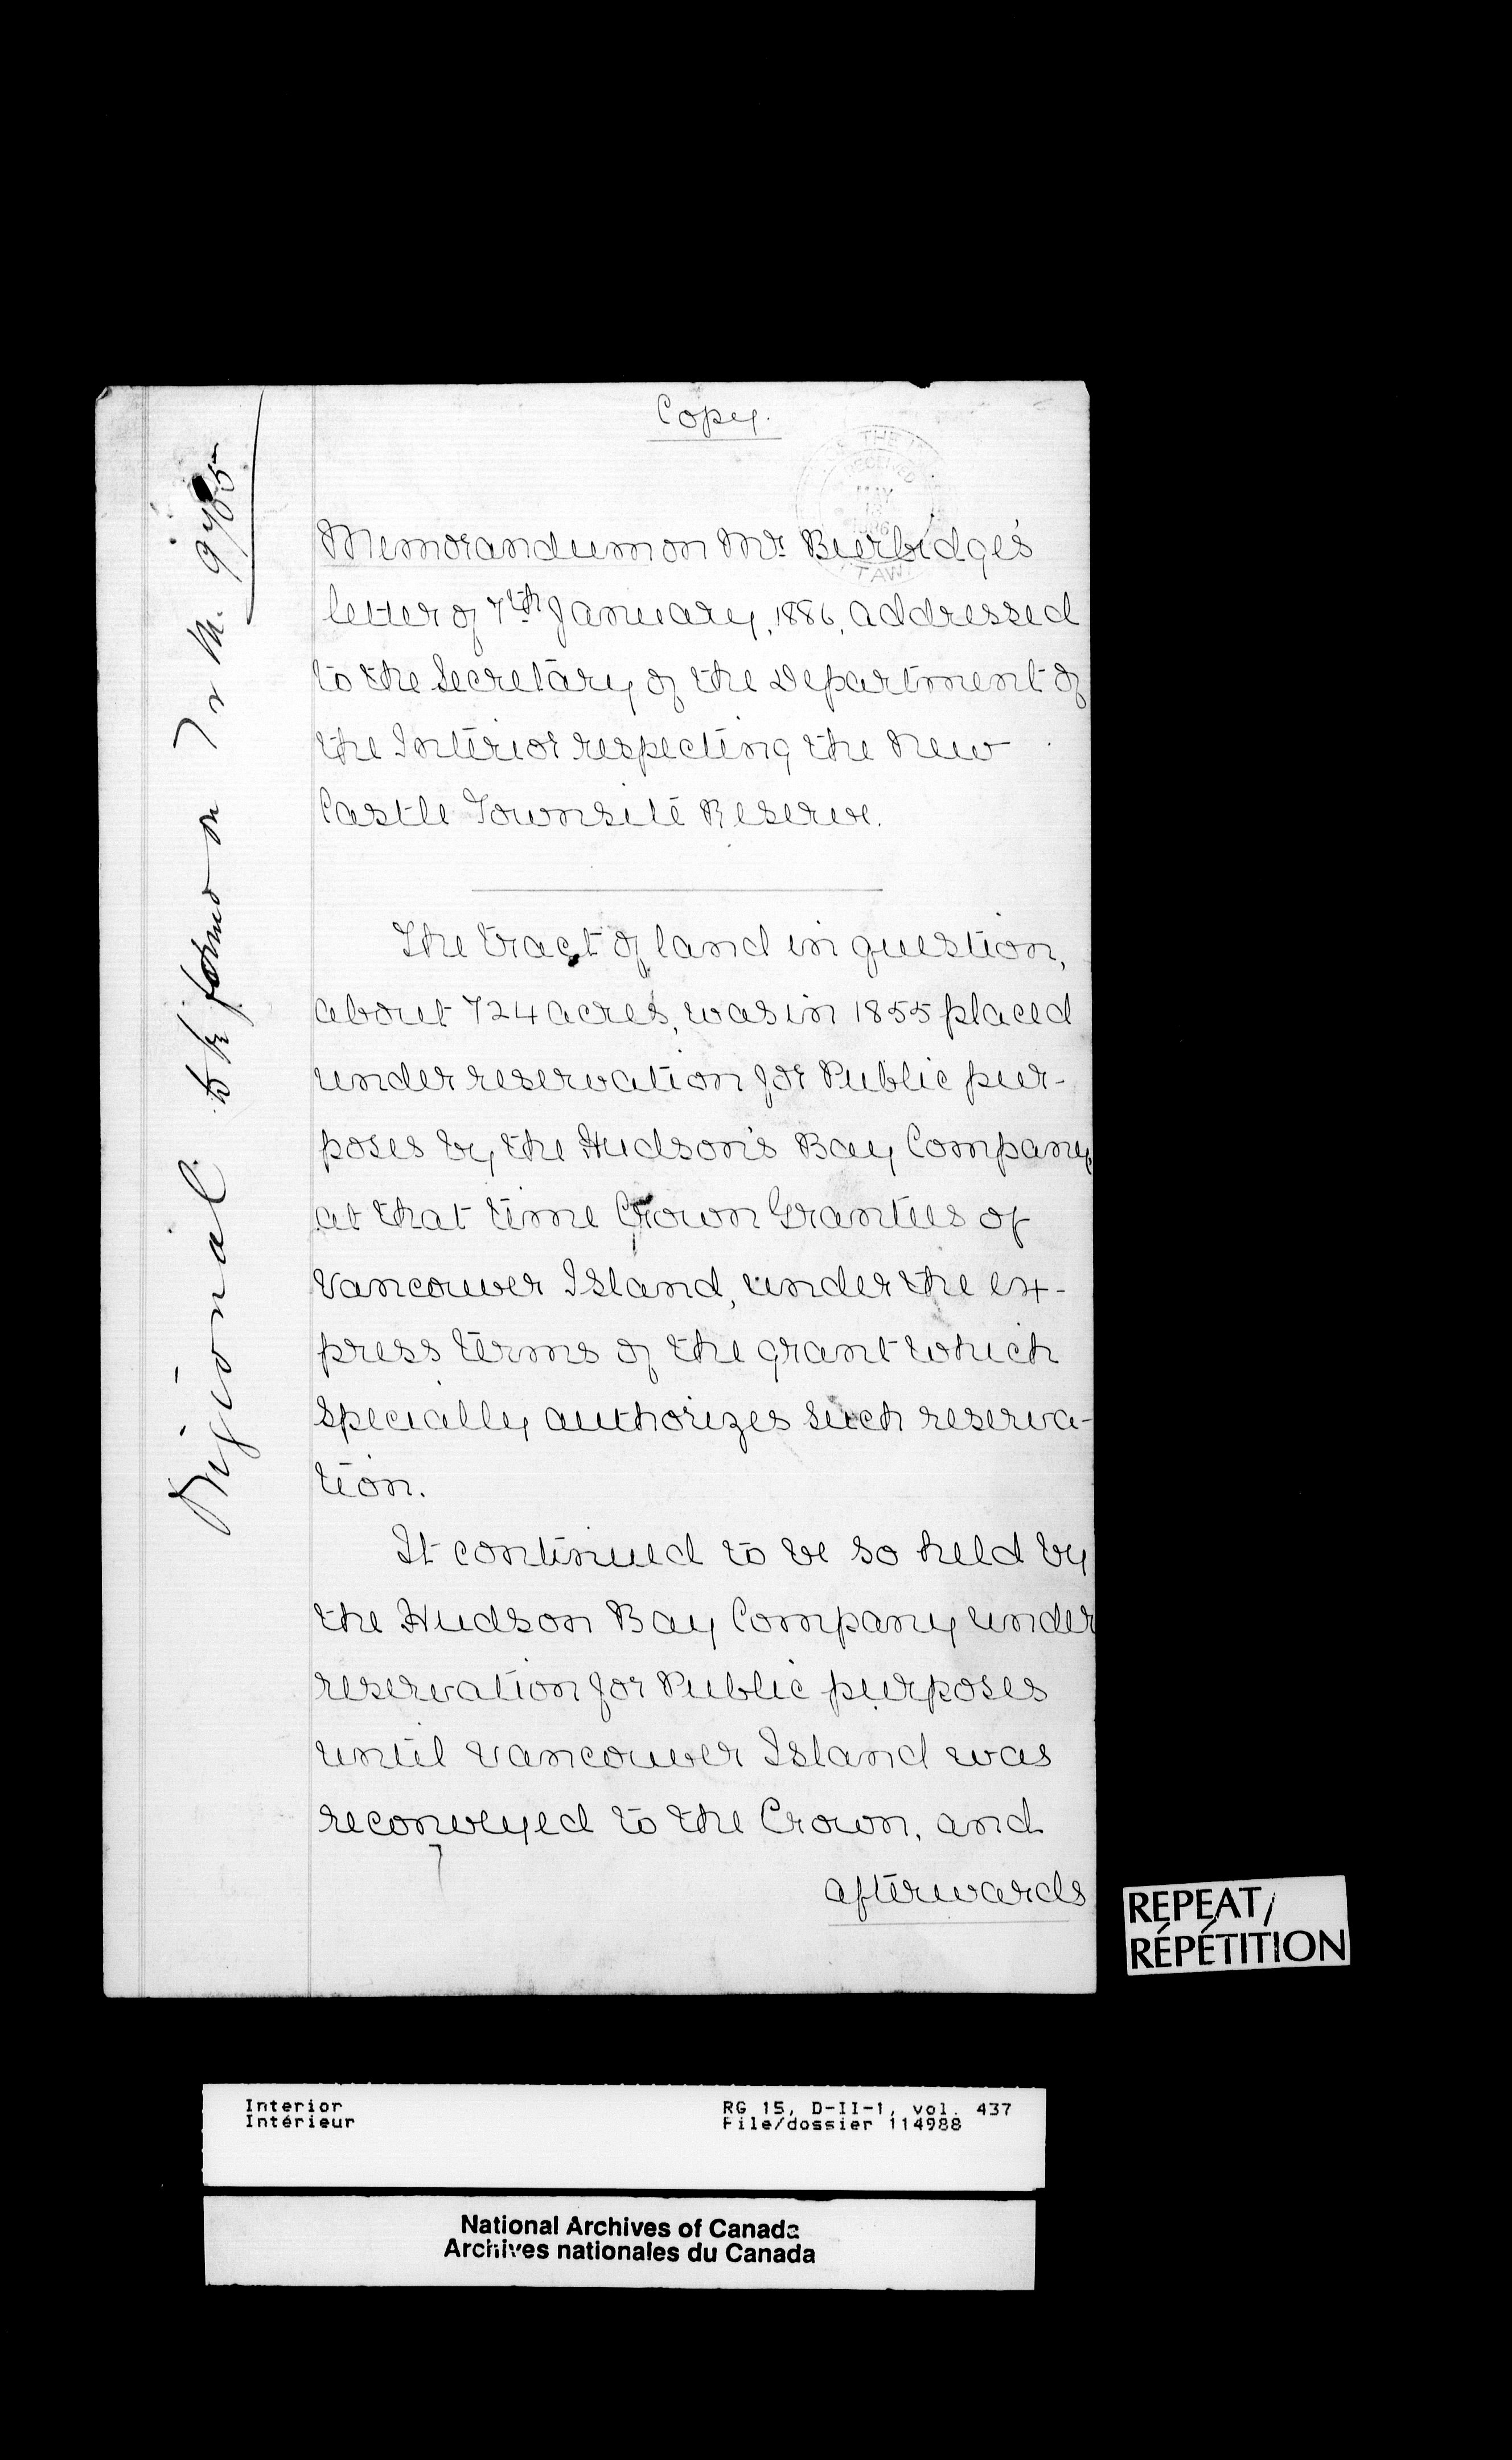 Copy.
OF THE
RECEIVED
MAY
13
1886
OTTAWA
Memorandum on Mr. Burbidge's
letter of 7th January, 1886, addressed
to the Secretary of the Department of
the Interior respecting the New
Castle Townsite Reserve.
The tract of land in question,
about 724 acres, was in 1855 placed
under reservation for Public pur-
poses by the Hudson's Bay Company,
at that time Crown Grantees of
Vancouver Island, under the ex-
press terms of the grant which
specially authorizes such reserva-
tion.
It continued to be so held by
the Hudson Bay Company under
reservation for Public purposes
until Vancouver Island was
reconveyed to the Crown, and
afterwards
Original to be found on
REPEAT/
RÉPÉTITION
Interior RG 15, D-II-1, vol. 437
Intérieur File/dossier 114988
National Archives of Canada
Archives nationales du Canada